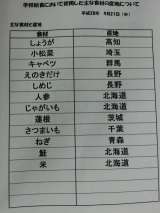 学校給食において使用した主な食材の産地について
平成28年 9月21日 (水)
主な食材と産地
食材 産地
しょうが 高知
小松菜 埼玉
キャベツ 群馬
えのきだけ 長野
しめじ 長野
人参 北海道
じゃがいも 北海道
蓮根 茨城
さつまいも 千葉
ねぎ 青森
鮭 北海道
米 北海道